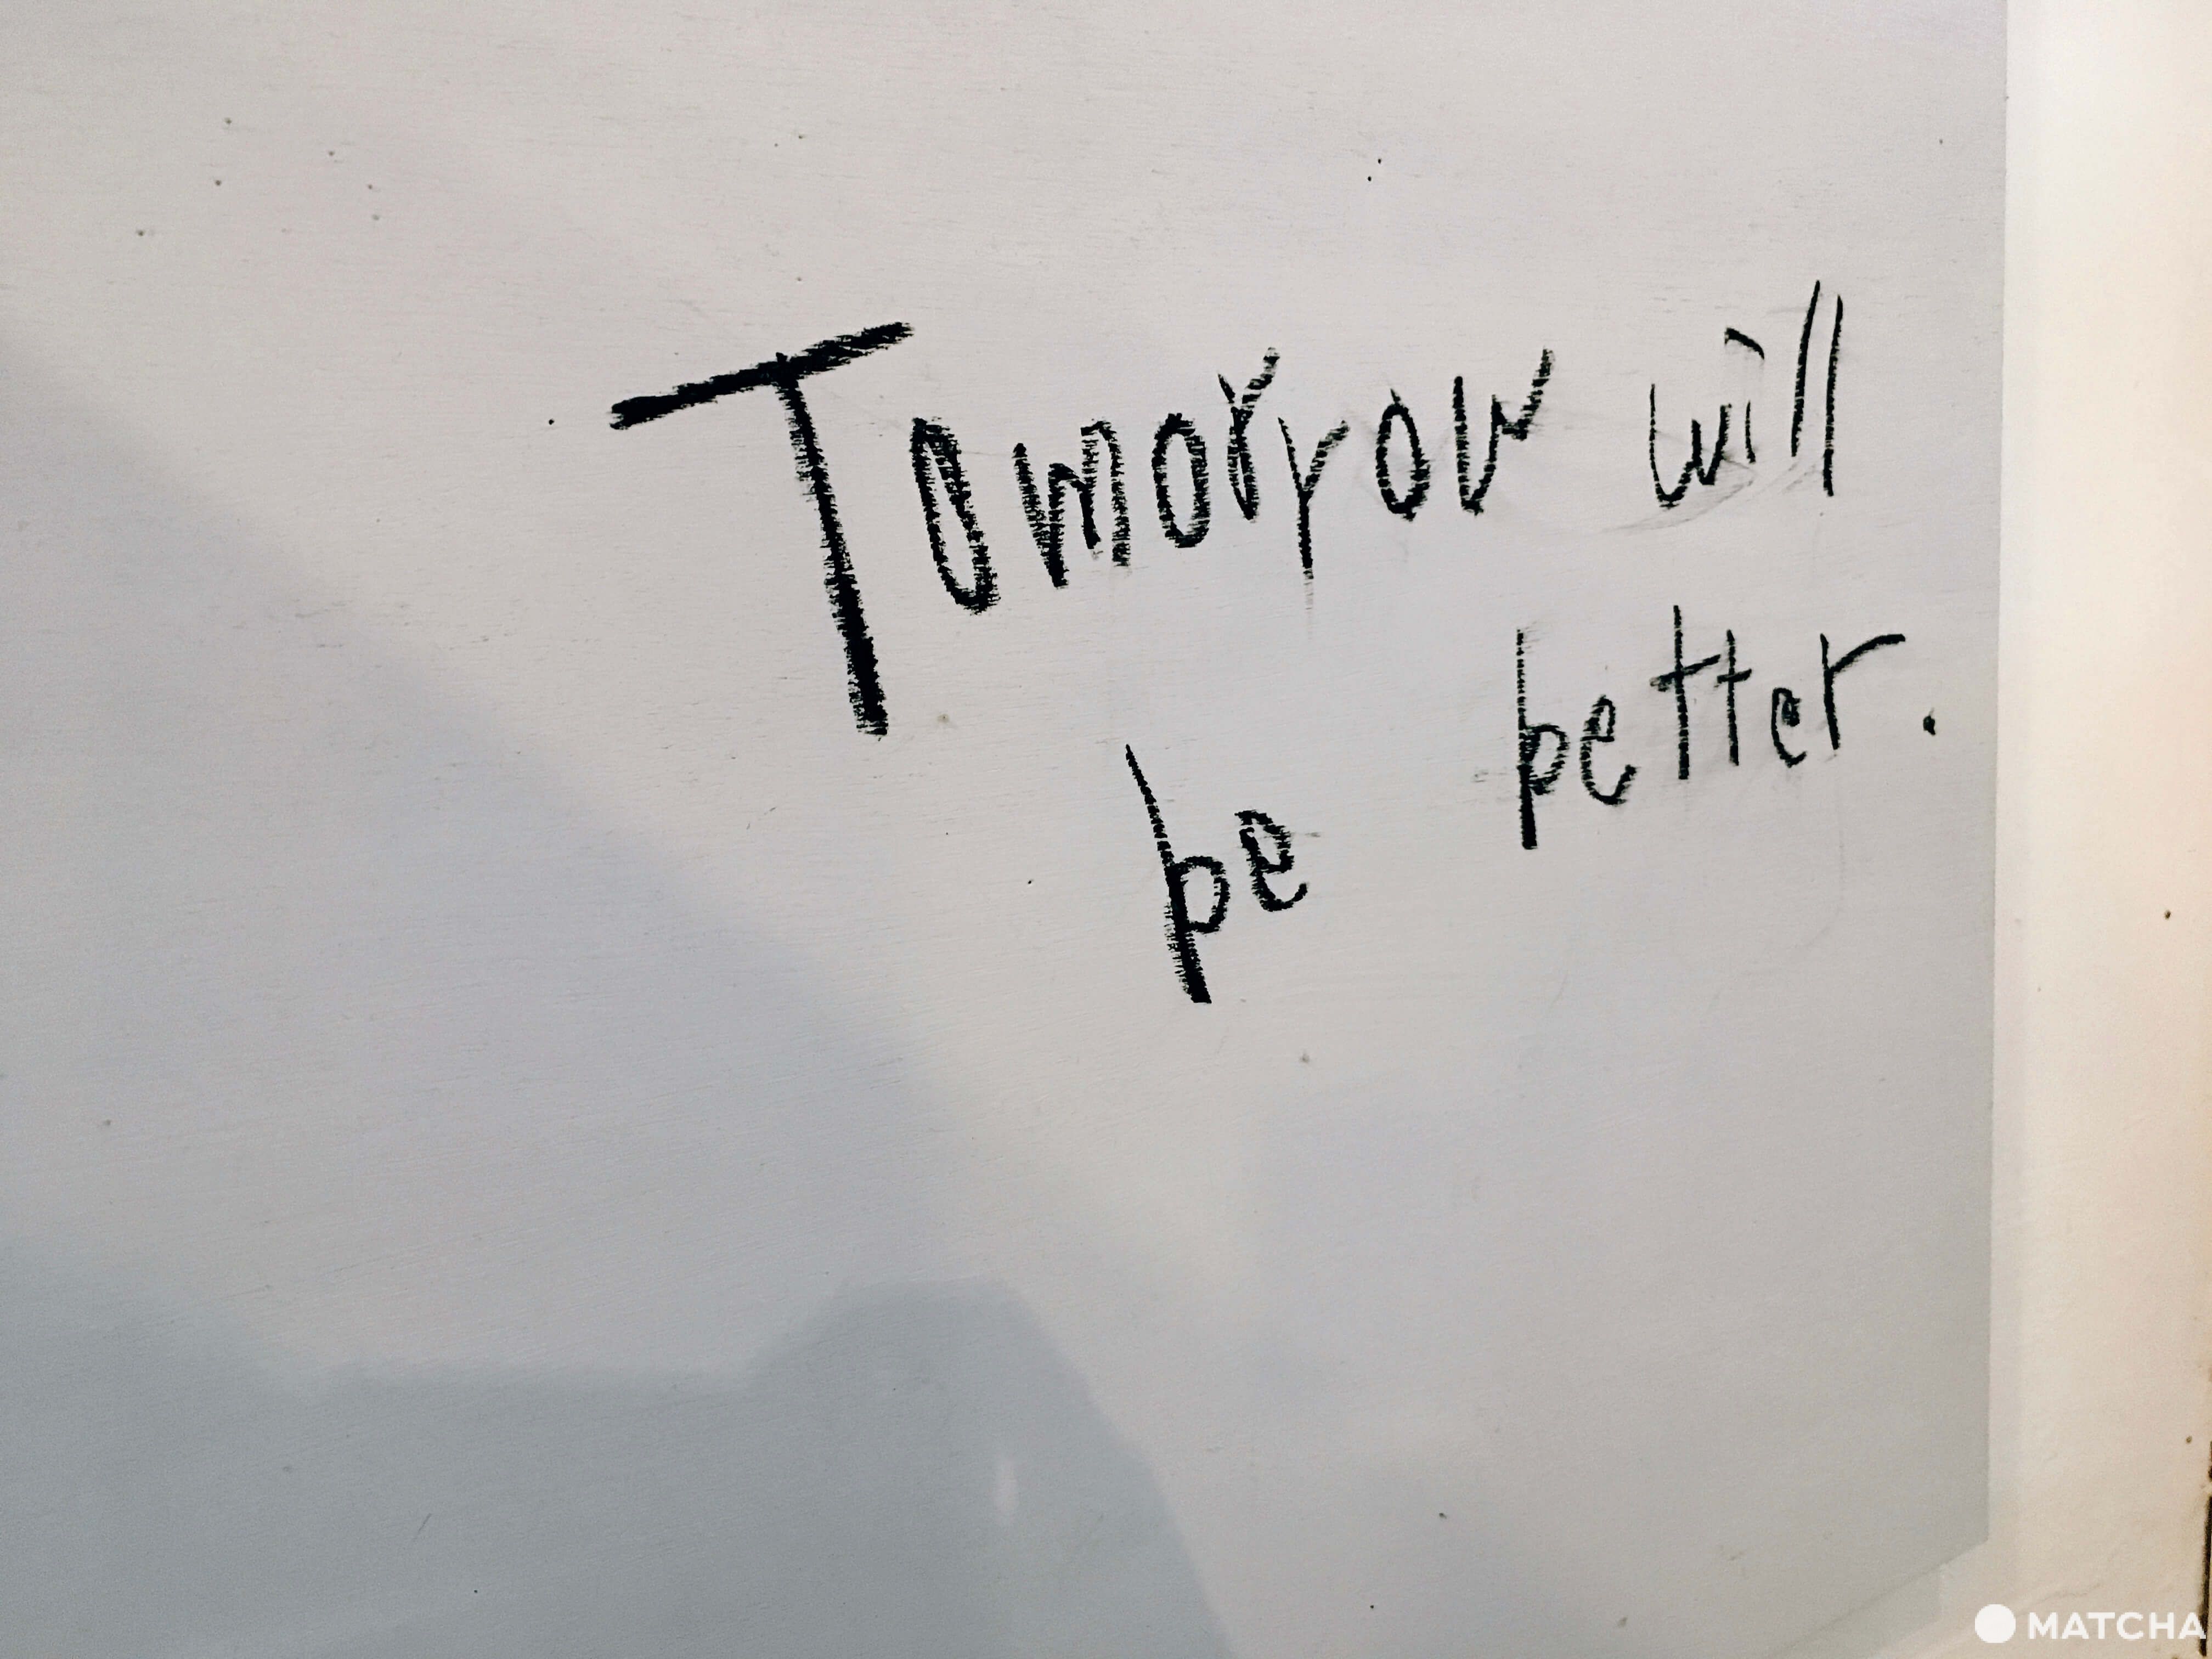 Tomorrow will
be better.
MATCHA